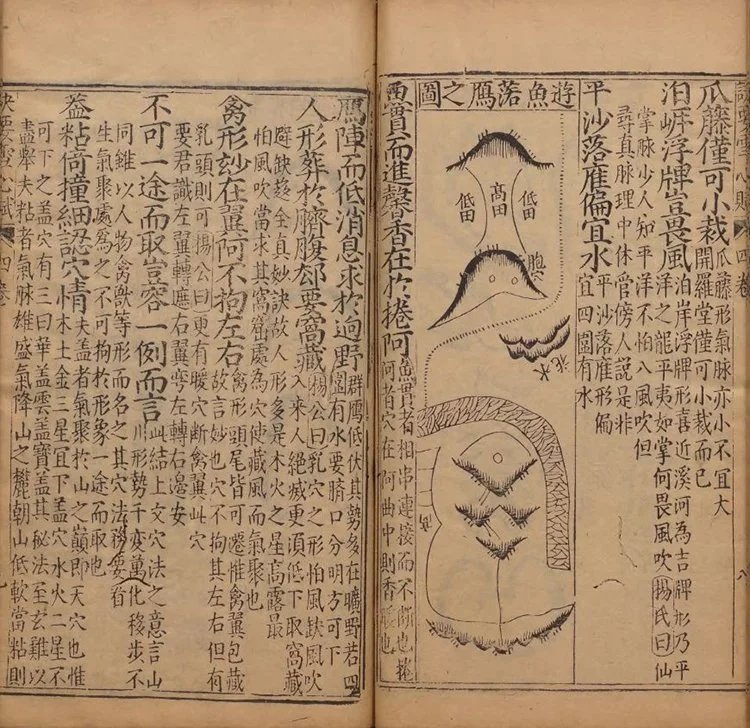 四卷
八
瓜藤僅可小裁瓜藤形氣脉亦小不宜大
開羅堂僅可小裁而已
泊岸浮牌豈畏風泊岸浮牌形喜近溪河為吉牌形乃平
洋之龍平夷如掌何畏風吹楊氏曰仙
掌脉少人知平洋不怕八風吹但
尋真脉理中休管傍人說是非
平沙落雁偏宜水平沙落雁形偏
宜四圍有水
遊魚落鴈之圖
低田
高田
低田
魚貫而進馨香在於捲阿魚貫者相串連接而不斷也捲
阿者穴在阿曲中則香馥也
鴈陣而低消息求於迥野群鴈低伏其勢多在曠野若四
圍有水要臍口分明方可下
人形葬於臍腹郤要窩藏楊公曰乳穴之形怕風缺風吹
入來人絕滅更須低下取窩藏
避缺趨全真妙訣故人形多是木火之星高露最
怕風吹當求其窩窟處為穴使藏風而氣聚也
禽形妙在翼阿不拘左右禽形頭尾皆可遷惟禽翼包藏
故言妙也穴不拘其左右但有
乳頭則可楊公曰更有暖穴断禽翼此穴
要君識左翼轉應右翼彎左轉右邊安
不可一途而取豈容一例而言此結上文穴法之意言山
川形勢千变萬化移步不
同雖以人物禽獸等形而名之其穴法務要看
生氣聚處為之不可拘於形象一途而取也
蓋粘倚撞細認穴情夫蓋者氣聚於山之巔即天穴也惟
木土金三星宜下蓋穴水火二星不
可下之蓋穴有三曰華蓋雲蓋寶蓋其秘法至玄難以
盡舉夫粘者氣脉雄盛氣降山之麓朝山低軟當粘則
四卷
九